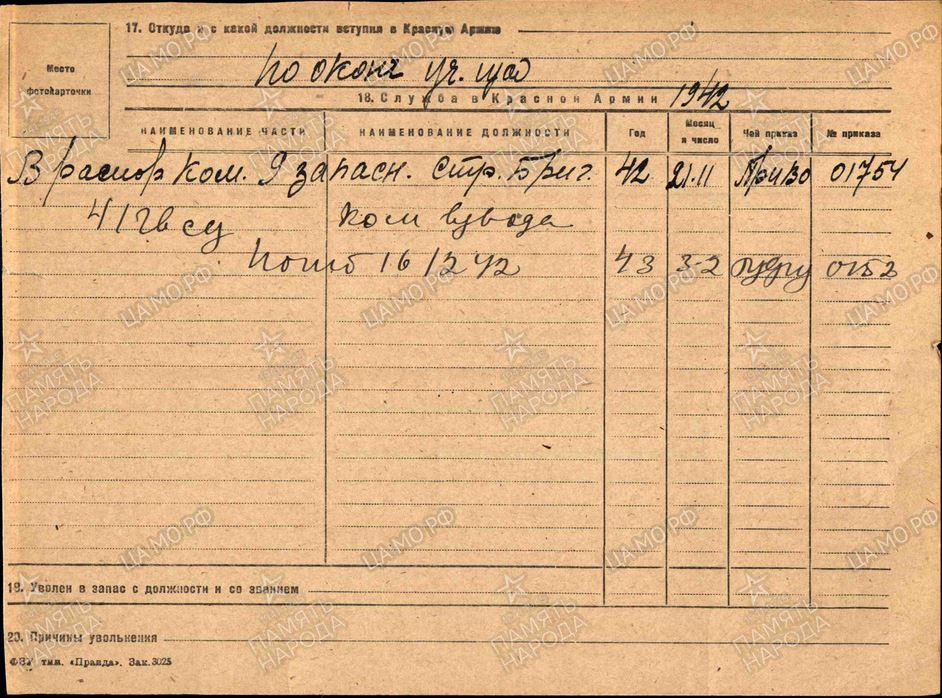 17. Откуда и с какой должности вступил в Красную Армию
Место
фотокарточки
по оконч уч. ща
18. Служба в Красной Армии 1942
НАИМЕНОВАНИЕ ЧАСТИ НАИМЕНОВАНИЕ ДОЛЖНОСТИ Год Месяц и число Чей приказ № приказа
В распор Ком. 9 запасн. стр. Бриг. 42 21-11 ПриВо 01754
41 гв сд Ком взвода
погиб 16 12 42 43 3-2 0152
19. Уволен в запас с должности и со званием
20. Причины увольнения
ФЗУ тип. «Правда». Зак. 3025
ЦАМО.РФ
ПАМЯТЬ НАРОДА